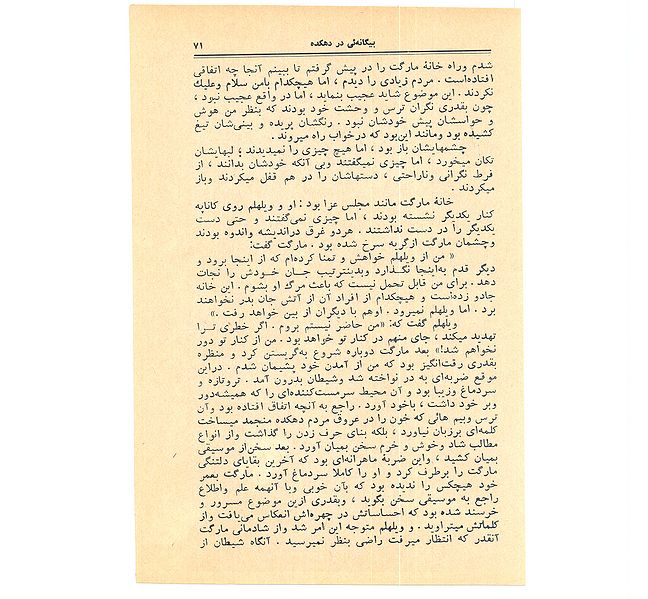 بیگانه‌ئی در دهکده
۷۱
شدم وراه خانهٔ مارگت را در پیش گرفتم تا ببینم آنجا چه اتفاقی
افتاده‌است . مردم زیادی را دیدم ، اما هیچکدام بامن سلام وعلیك
نکردند . این موضوع شاید عجیب بنماید ، اما در واقع عجیب نبود ،
چون بقدری نگران ترس و وحشت خود بودند که بنظر من هوش
و حواسشان پیش خودشان نبود . رنگشان پریده و بینی‌شان تیغ
کشیده بود ومانند این‌بود که درخواب راه میروند .
چشمهایشان باز بود ، اما هیچ چیزی را نمیدیدند ؛ لبهایشان
تکان میخورد ، اما چیزی نمیگفتند وبی آنکه خودشان بدانند ، از
فرط نگرانی وناراحتی ، دستهاشان را در هم قفل میکردند وباز
میکردند .
خانهٔ مارگت مانند مجلس عزا بود : او و ویلهلم روی کاناپه
کنار یکدیگر نشسته بودند ، اما چیزی نمی‌گفتند و حتی دست
یکدیگر را در دست نداشتند . هردو غرق دراندیشه واندوه بودند
وچشمان مارگت ازگریه سرخ شده بود . مارگت گفت:
« من از ویلهلم خواهش و تمنا کرده‌ام که از اینجا برود و
دیگر قدم به‌اینجا نگذارد وبدینترتیب جان خودش را نجات
دهد . برای من قابل تحمل نیست که باعث مرگ او بشوم . این خانه
جادو زده‌است و هیچکدام از افراد آن از آتش جان بدر نخواهند
برد . اما ویلهلم نمیرود . اوهم با دیگران از بین خواهد رفت .»
ویلهلم گفت که: «من حاضر نیستم بروم . اگر خطری ترا
تهدید میکند ، جای منهم در کنار تو خواهد بود . من از کنار تو دور
نخواهم شد!» بعد مارگت دوباره شروع به‌گریستن کرد و منظره
بقدری رقت‌انگیز بود که من از آمدن خود پشیمان شدم . دراین
موقع ضربه‌ای به در نواخته شد وشیطان بدرون آمد . تروتازه و
سردماغ وزیبا بود و آن محیط سرمست‌کننده‌ای را که همیشه‌دور
وبر خود داشت ، باخود آورد . راجع به آنچه اتفاق افتاده بود وآن
ترس وبیم هائی که خون را در عروق مردم دهکده منجمد میساخت
کلمه‌ای برزبان نیاورد ، بلکه بنای حرف زدن را گذاشت واز انواع
مطالب شاد وخوش و خرم سخن بمیان آورد . بعد سخن‌از موسیقی
بمیان کشید ، واین ضربهٔ ماهرانه‌ای بود که آخرین بقایای دلتنگی
مارگت را برطرف کرد و او را کاملا سردماغ آورد . مارگت بعمر
خود هیچکس را ندیده بود که بآن خوبی وبا آنهمه علم واطلاع
راجع به موسیقی سخن بگوید ، وبقدری ازین موضوع مسرور و
خرسند شده بود که احساساتش در چهره‌اش انعکاس می‌یافت واز
کلماتش میتراوید . و ویلهلم متوجه این امر شد واز شادمانی مارگت
آنقدر که انتظار میرفت راضی بنظر نمیرسید . آنگاه شیطان از